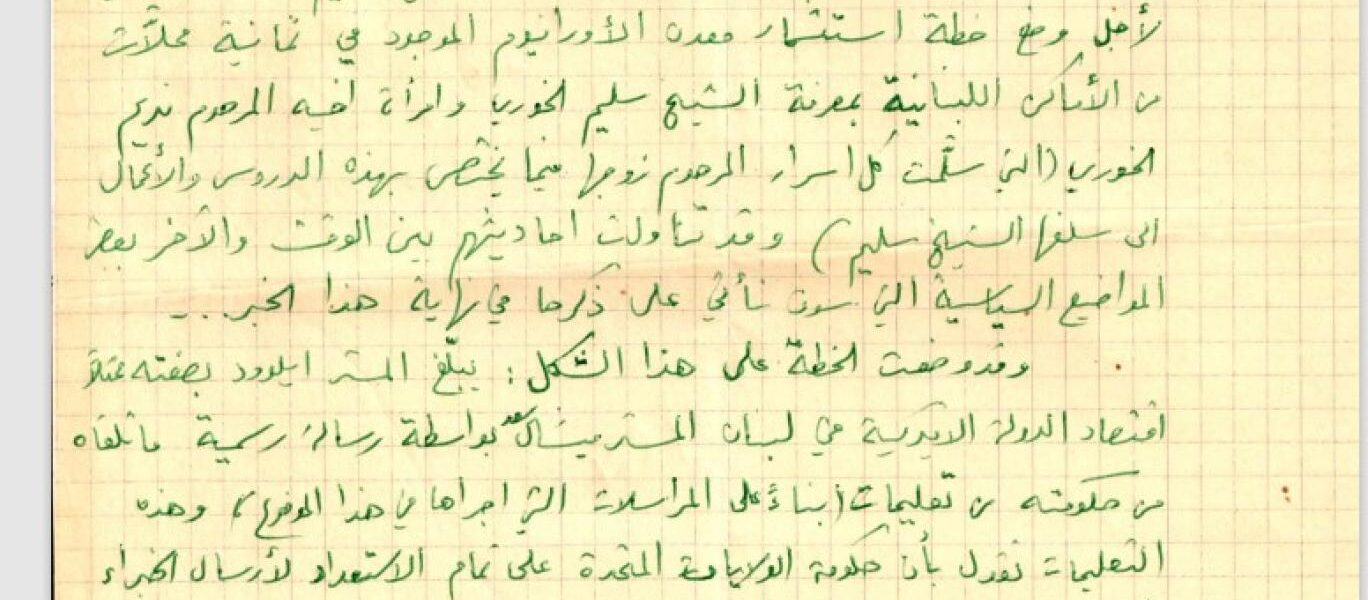 لأجل وضع خطة استثمار معدن الأورانيوم الموجود في ثمانية محلاّت
من الأماكن اللبنانية بمعرفة الشيخ سليم الخوري وامرأة اخيه المرحوم نديم
الخوري (التي سلّمت كل اسرار المرحوم زوجها فيما يختص بهذه الدروس والأعمال
الى سلفها الشيخ سليم) وقد تناولت احاديثهم بين الوقت والآخر بعض
المواضيع السياسية التي سوف نأتي على ذكرها في نهاية هذا الخبر...
وقد وضعت الخطة على هذا الشكل: يبلّغ المستر ايلوود بصفته ممثلاً
اقتصاد الدولة الاميركية في لبنان المستر ميشال بواسطة رسالة رسمية ما تلقاه
من حكومته من تعليمات (بناءً على المراسلات التي اجراها في هذا الموضوع) وهذه
التعليمات تقول بأن حكومة الولايات المتحدة على تمام الاستعداد لأرسال الخبراء